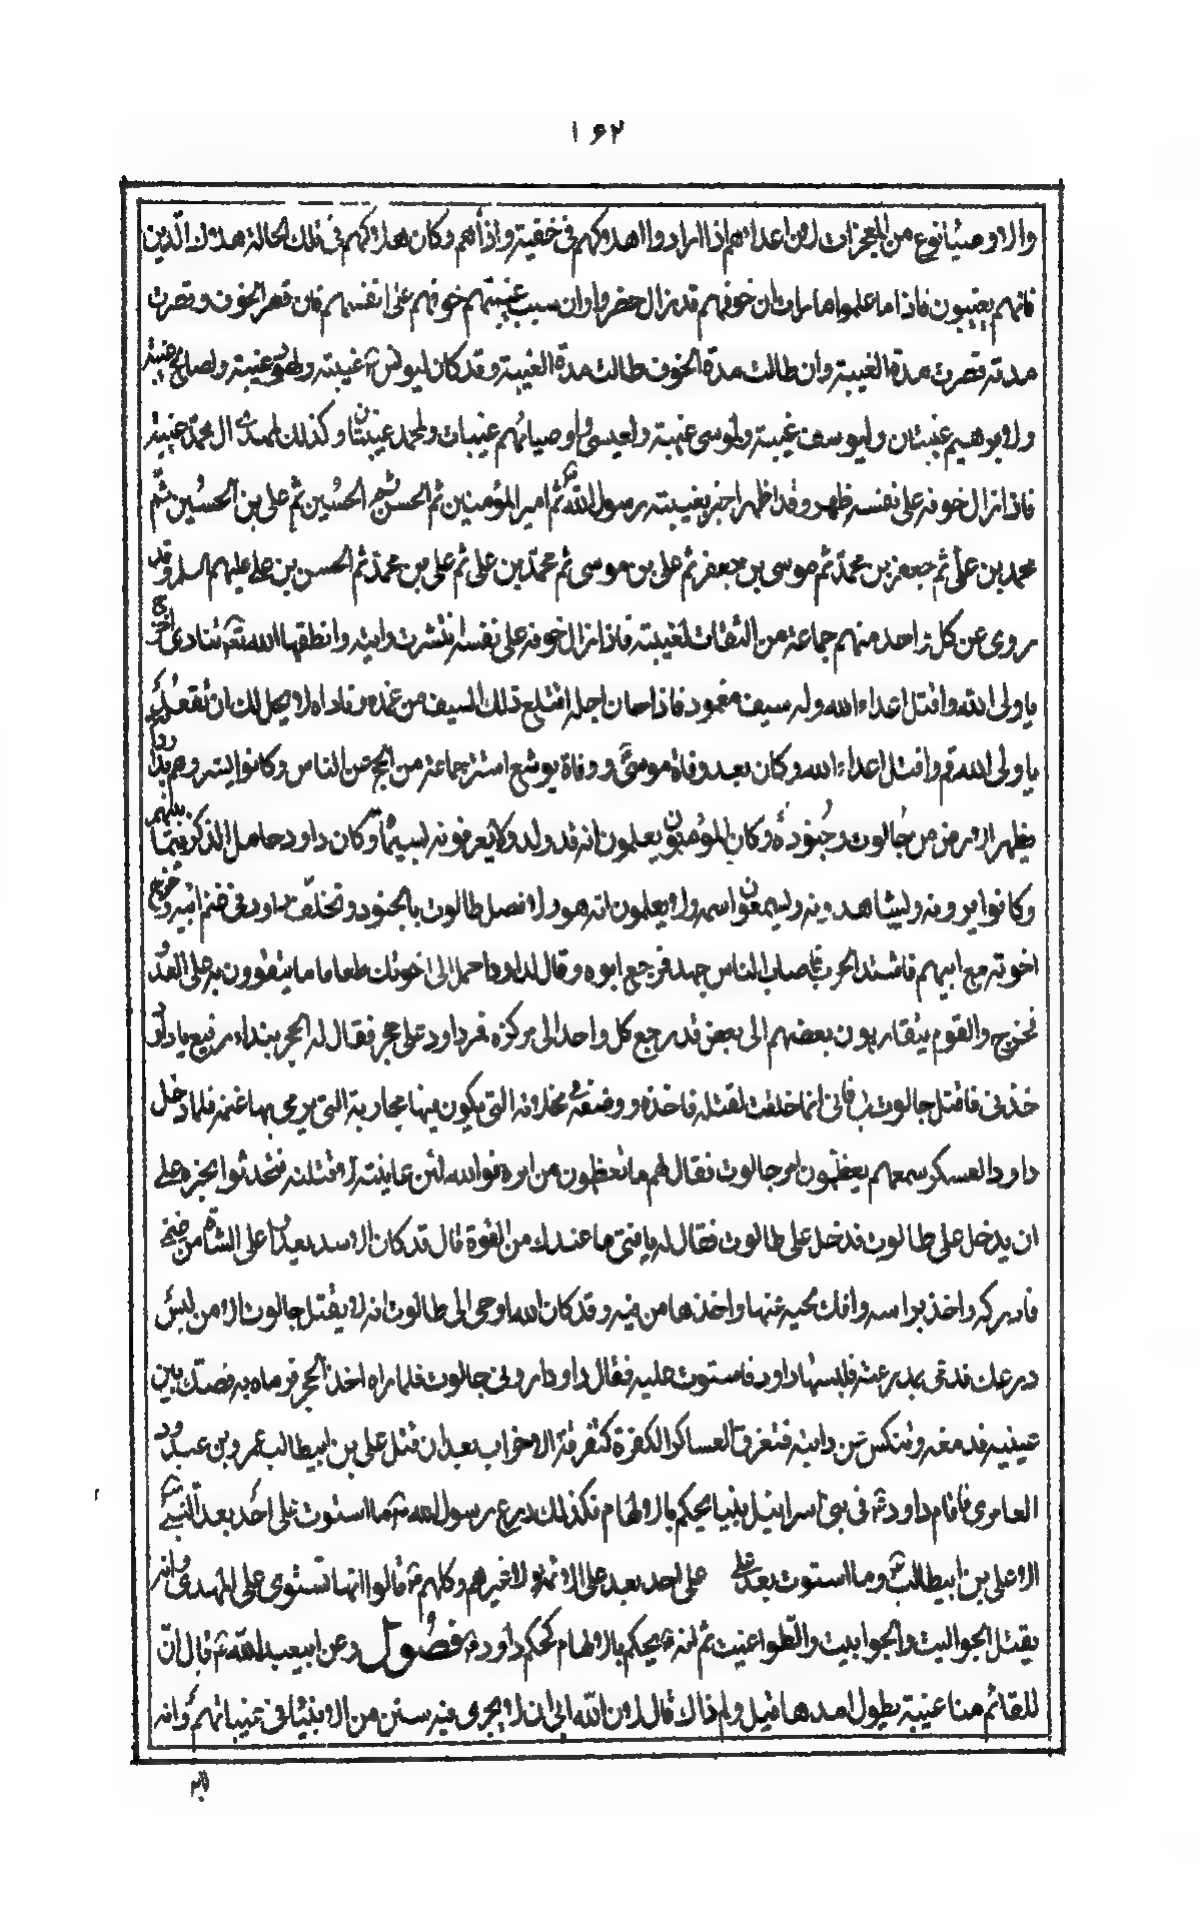 ١٦٢
والاوصياء نوع من المعجزات لمن اعدائهم اذا ارادوا اهدوكهم في خفية واذاهم وكان هلاكهم في تلك الحالة هدن الذين
فانهم يغيبون فاذا ما علموا امارات ان خوفهم قد زال حضروا وان سبب غيبتهم خوفهم على انفسهم فان قصر الخوف وقصرت
مدته قصرت مدة الغيبة وان طالت مدة الخوف طالت مدة الغيبة وقد كان ليونس غيبته ولهود غيبة ولصالح غيبة
ولابرهيم غيبتان وليوسف غيبة ولموسى غيبة ولعيسى واوصيائهم غيبات ولمحمد غيبتان وكذلك لمهدي ال محمد غيبة
فاذا زال خوفه على نفسه ظهر وقد اظهر اخبر بغيبته رسول الله ثم امير المؤمنين ثم الحسن ثم الحسين ثم علي بن الحسين ثم
محمد بن علي ثم جعفر بن محمد ثم موسى بن جعفر ثم علي بن موسى ثم محمد بن علي ثم علي بن محمد ثم الحسن بن علي عليهم السلم وقد
روى عن كل واحد منهم جماعة من الثقات لغيبته فاذا زال خوفه على نفسه انتشرت رايته وانطقها الله تنادى اخرج
ياولى الله واقتل اعداء الله وله سيف مغمود فاذا حان اجله اقتلع ذلك السيف من غمده وناداه لا يحل لك ان تقعد
ياولى الله قم واقتل اعداء الله وكان بعد وفاة موسى ووفاة يوشع استتر جماعة من الحجج عن الناس وكانوا اليسر وهم
يظهر الامر من جالوت وجنوده وكان المؤمنون يعلمون انه قد ولد ولا يعرفونه وكان داود حامل الذكر فيما بينهم
وكانوا يرونه وليشاهدونه وليسمعون اسمه ولا يعلمون انه هو ولا فصل طالوت بالجنود وتخلف داود في غنم ابيه وخرج
اخوته مع ابيهم فاشتد الحرب فاصاب الناس جهد فرجع ابوه وقال لداود احمل الى اخوتك طعاما ما يتقوون به على العدو
فخرج والقوم يتقاربون بعضهم الى بعض قد رجع كل واحد الى مركزه فمر داود على حجر فقال له الحجر بنداء رفيع ياداود
خذنى فاقتل جالوت بى فانى انما خلقت لقتله فاخذه ووضعه في مخلاته التى يكون فيها حجارته التى يرمى بها غنمه فلما دخل
داود العسكر سمعهم يعظمون امر جالوت فقال لهم ما تعظمون من امره فوالله لئن عاينته لاقتلنه فتحدثوا بخبره على
ان يدخل على طالوت فدخل على طالوت فقال له يافتى ما عندك من القوة قال قد كان الاسد يعدو على الشاة من غنمى
فادركه واخذ براسه وافك لحييه عنها واخذها من فيه وقد كان الله اوحى الى طالوت انه لا يقتل جالوت الا من لبس
درعك فدعى بدرعه فلبسها داود فاستوت عليه فقال داود ارونى جالوت فلما راه اخذ الحجر فرماه به فصك بين
عينيه فدمغه وتنكس عن دابته فتفرق العساكر الكفرة كتفرقة الاحزاب بعد ان قتل علي بن ابيطالب عمرو بن عبدود
العامرى فاقام داود في بنى اسرائيل بنبيا يحكم بالالهام فكذلك درع رسول الله ما استوت على احد بعد النبي
الا علي بن ابيطالب وما استوت بعد على احد بعد علي الائمة ولا غيرهم وكلهم قالوا انها تستوى على المهدى وانه
يقتل الجواليت والجوابيت والطواغيت ثم انه يحكم بالالهام كحكم داود فصول وعن ابيعبدالله قال ان
للقائم منا غيبة يطول امدها فقيل ولم ذاك قال لان الله ابى ان لا يجرى فيه سنن من الانبياء في غيباتهم وانه
لابد